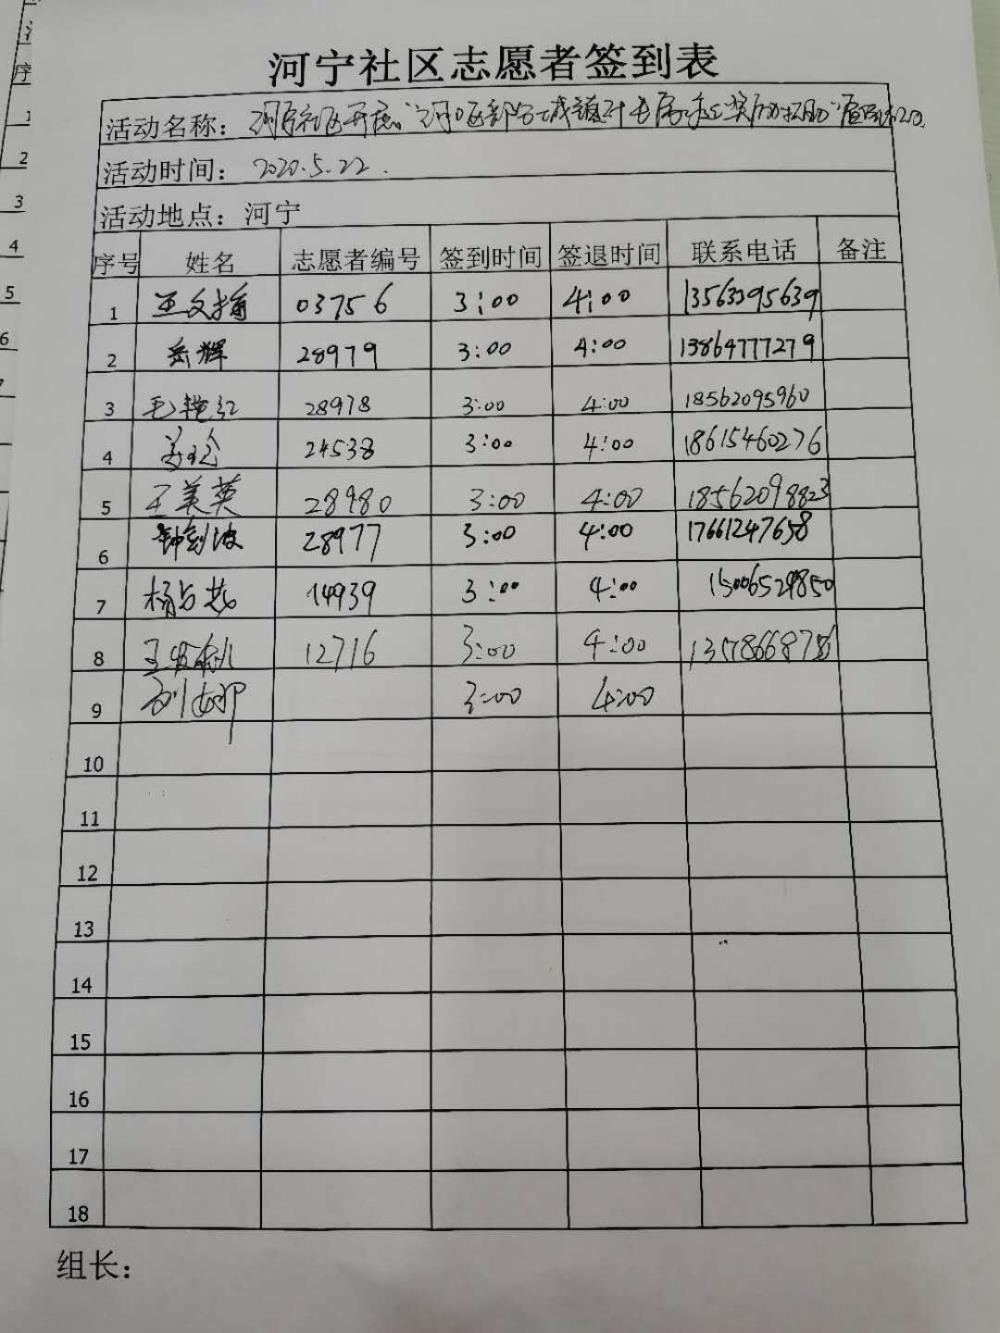 河宁社区志愿者签到表
活动名称：河宁社区开展"河口区部分城镇
活动时间：2020.5.22.
活动地点：河宁
序号 姓名 志愿者编号 签到时间 签退时间 联系电话 备注
1 王文梅 03756 3:00 4:00 13563395639
2 岳辉 28979 3:00 4:00 13864777279
3 毛艳红 28978 3:00 4:00 18562095960
4 24538 3:00 4:00 18615460276
5 王美英 28980 3:00 4:00 18562098823
6 钟剑波 28977 3:00 4:00 17661247658
7 杨占燕 14939 3:00 4:00 15006529850
8 12716 3:00 4:00
9 刘娜 3:00 4:00
10
11
12
13
14
15
16
17
18
组长：
序
1
2
3
4
5
6
7